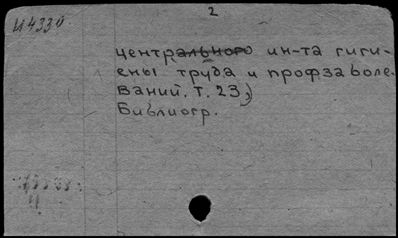 2
И4330.
центрального ин-та гиги-
ены труда и профзаболе-
ваний. Т. 23)
Библиогр.